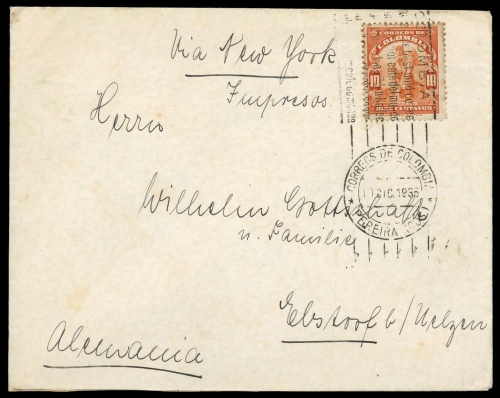 Via New York
Impresos
Herrn
Wilhelm
u. Familie
Ebstorf b/Uelzen
Alemania
CORREOS DE
COLOMBIA
10 10
CENTAVOS
CORREOS DE COLOMBIA
PEREIRA